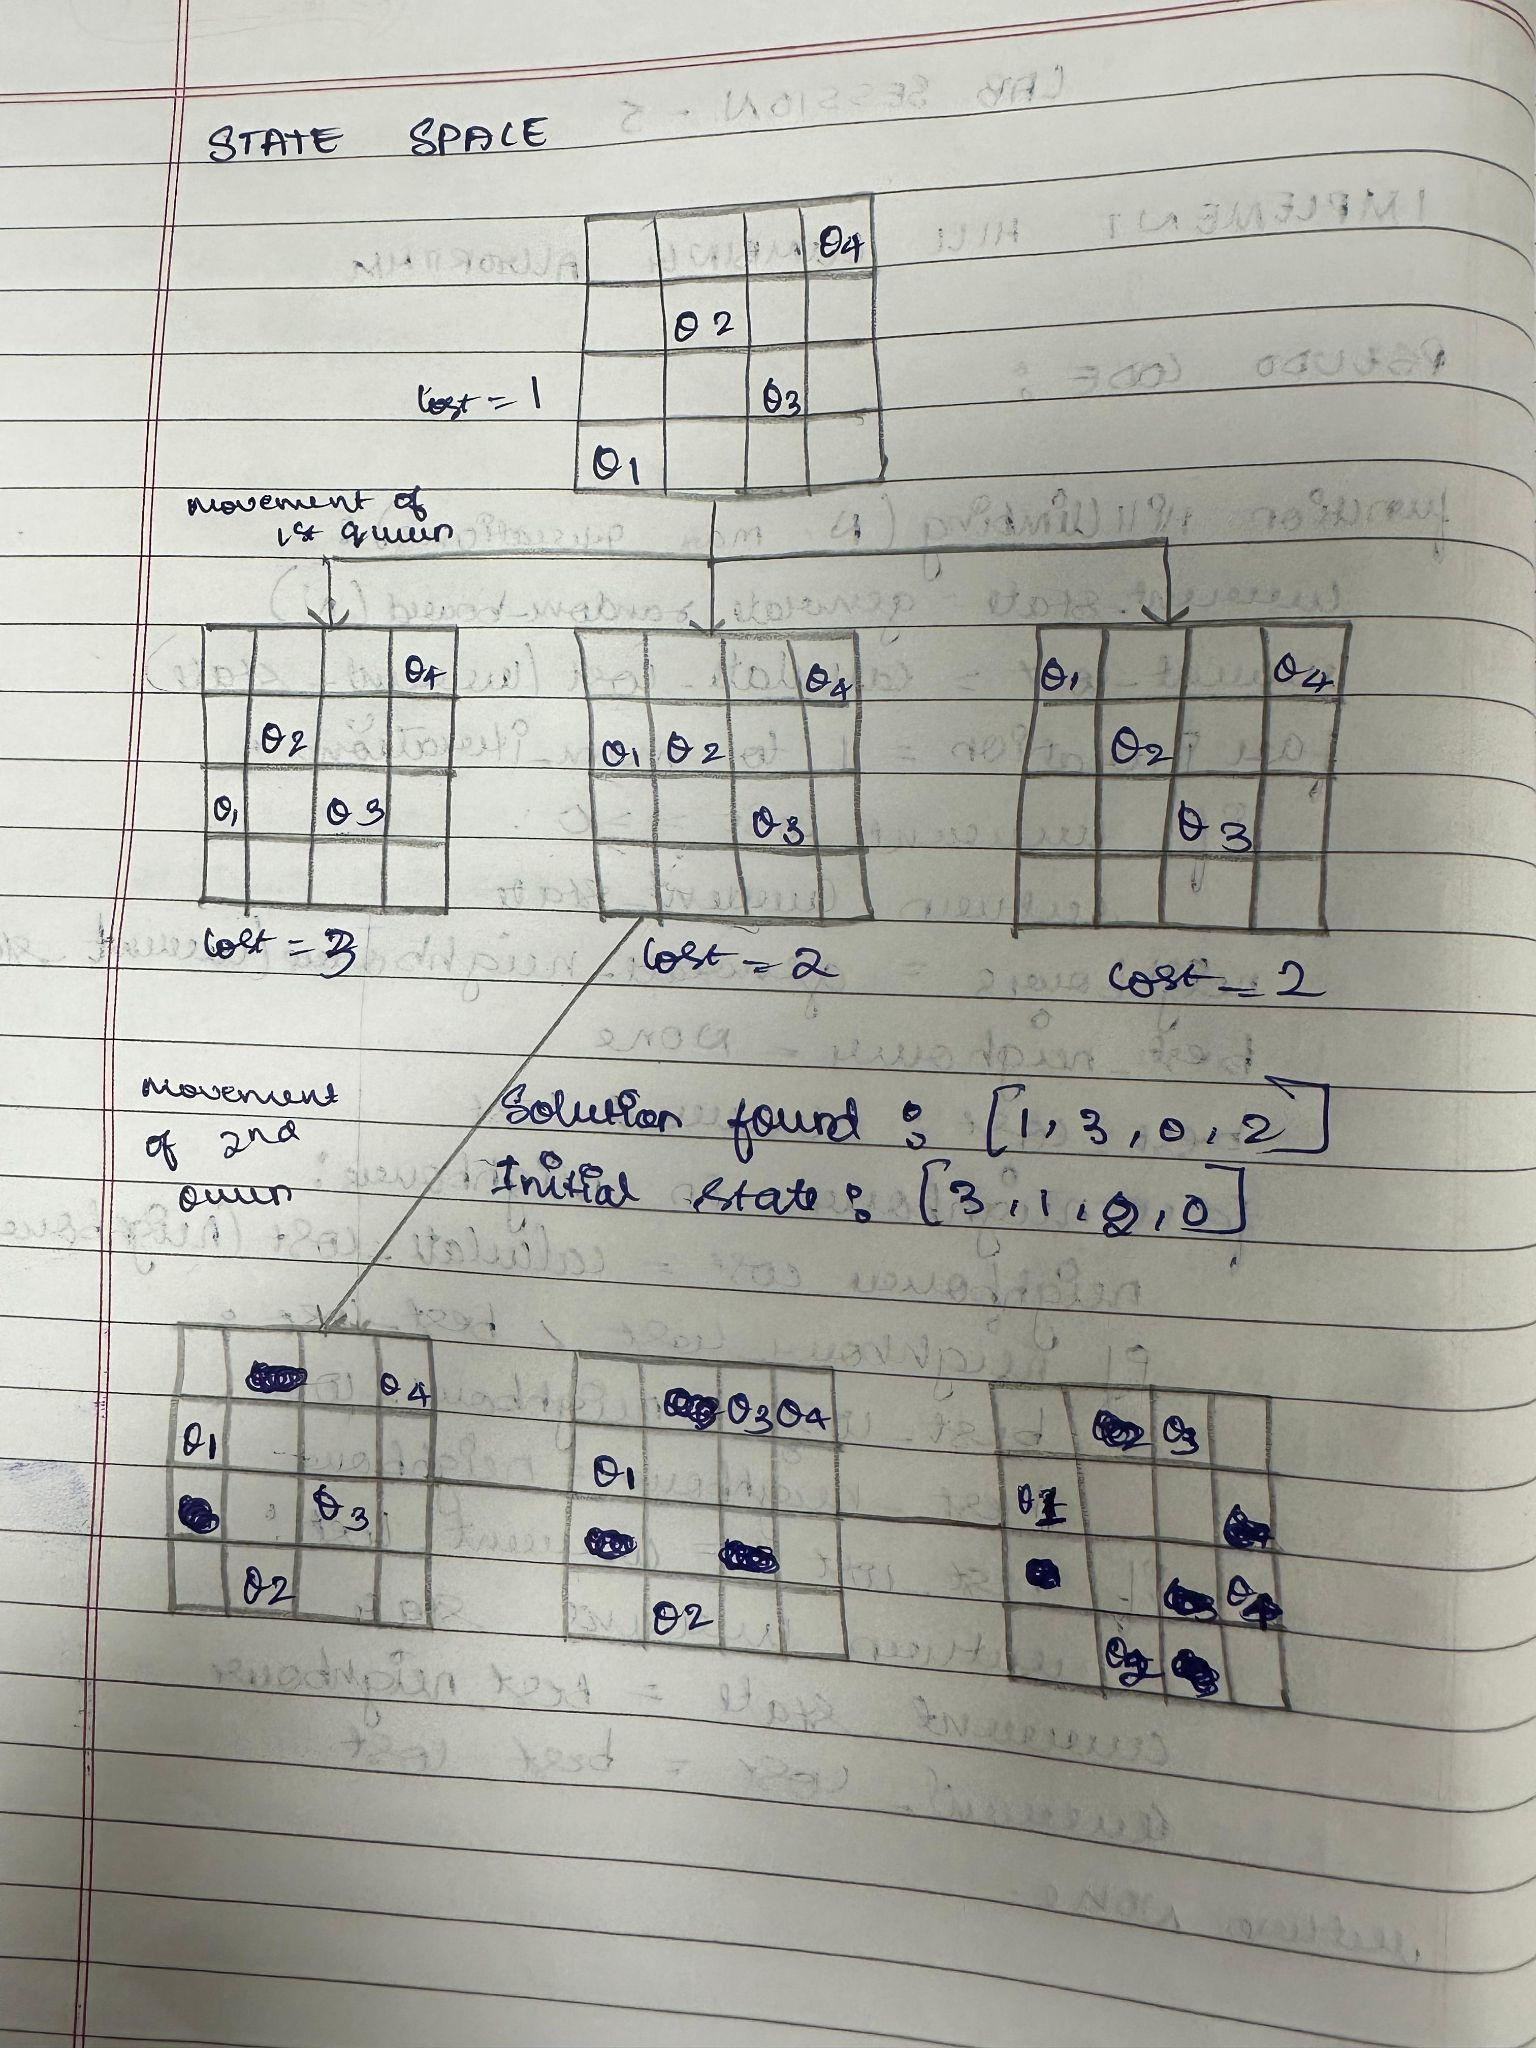 STATE SPACE
Q4
Q2
Cost = 1
Q3
Q1
movement of
1st queen
Q4
Q2
Q1 Q3
Cost = 3
Q4
Q1 Q2
Q3
Cost = 2
Q1 Q4
Q2
Q3
Cost = 2
movement
of 2nd
queen
Solution found : [1, 3, 0, 2]
Initial state : [3, 1, 2, 0]
Q4
Q1
Q3
Q2
Q3 Q4
Q1
Q2
Q3
Q1
Q4
Q2